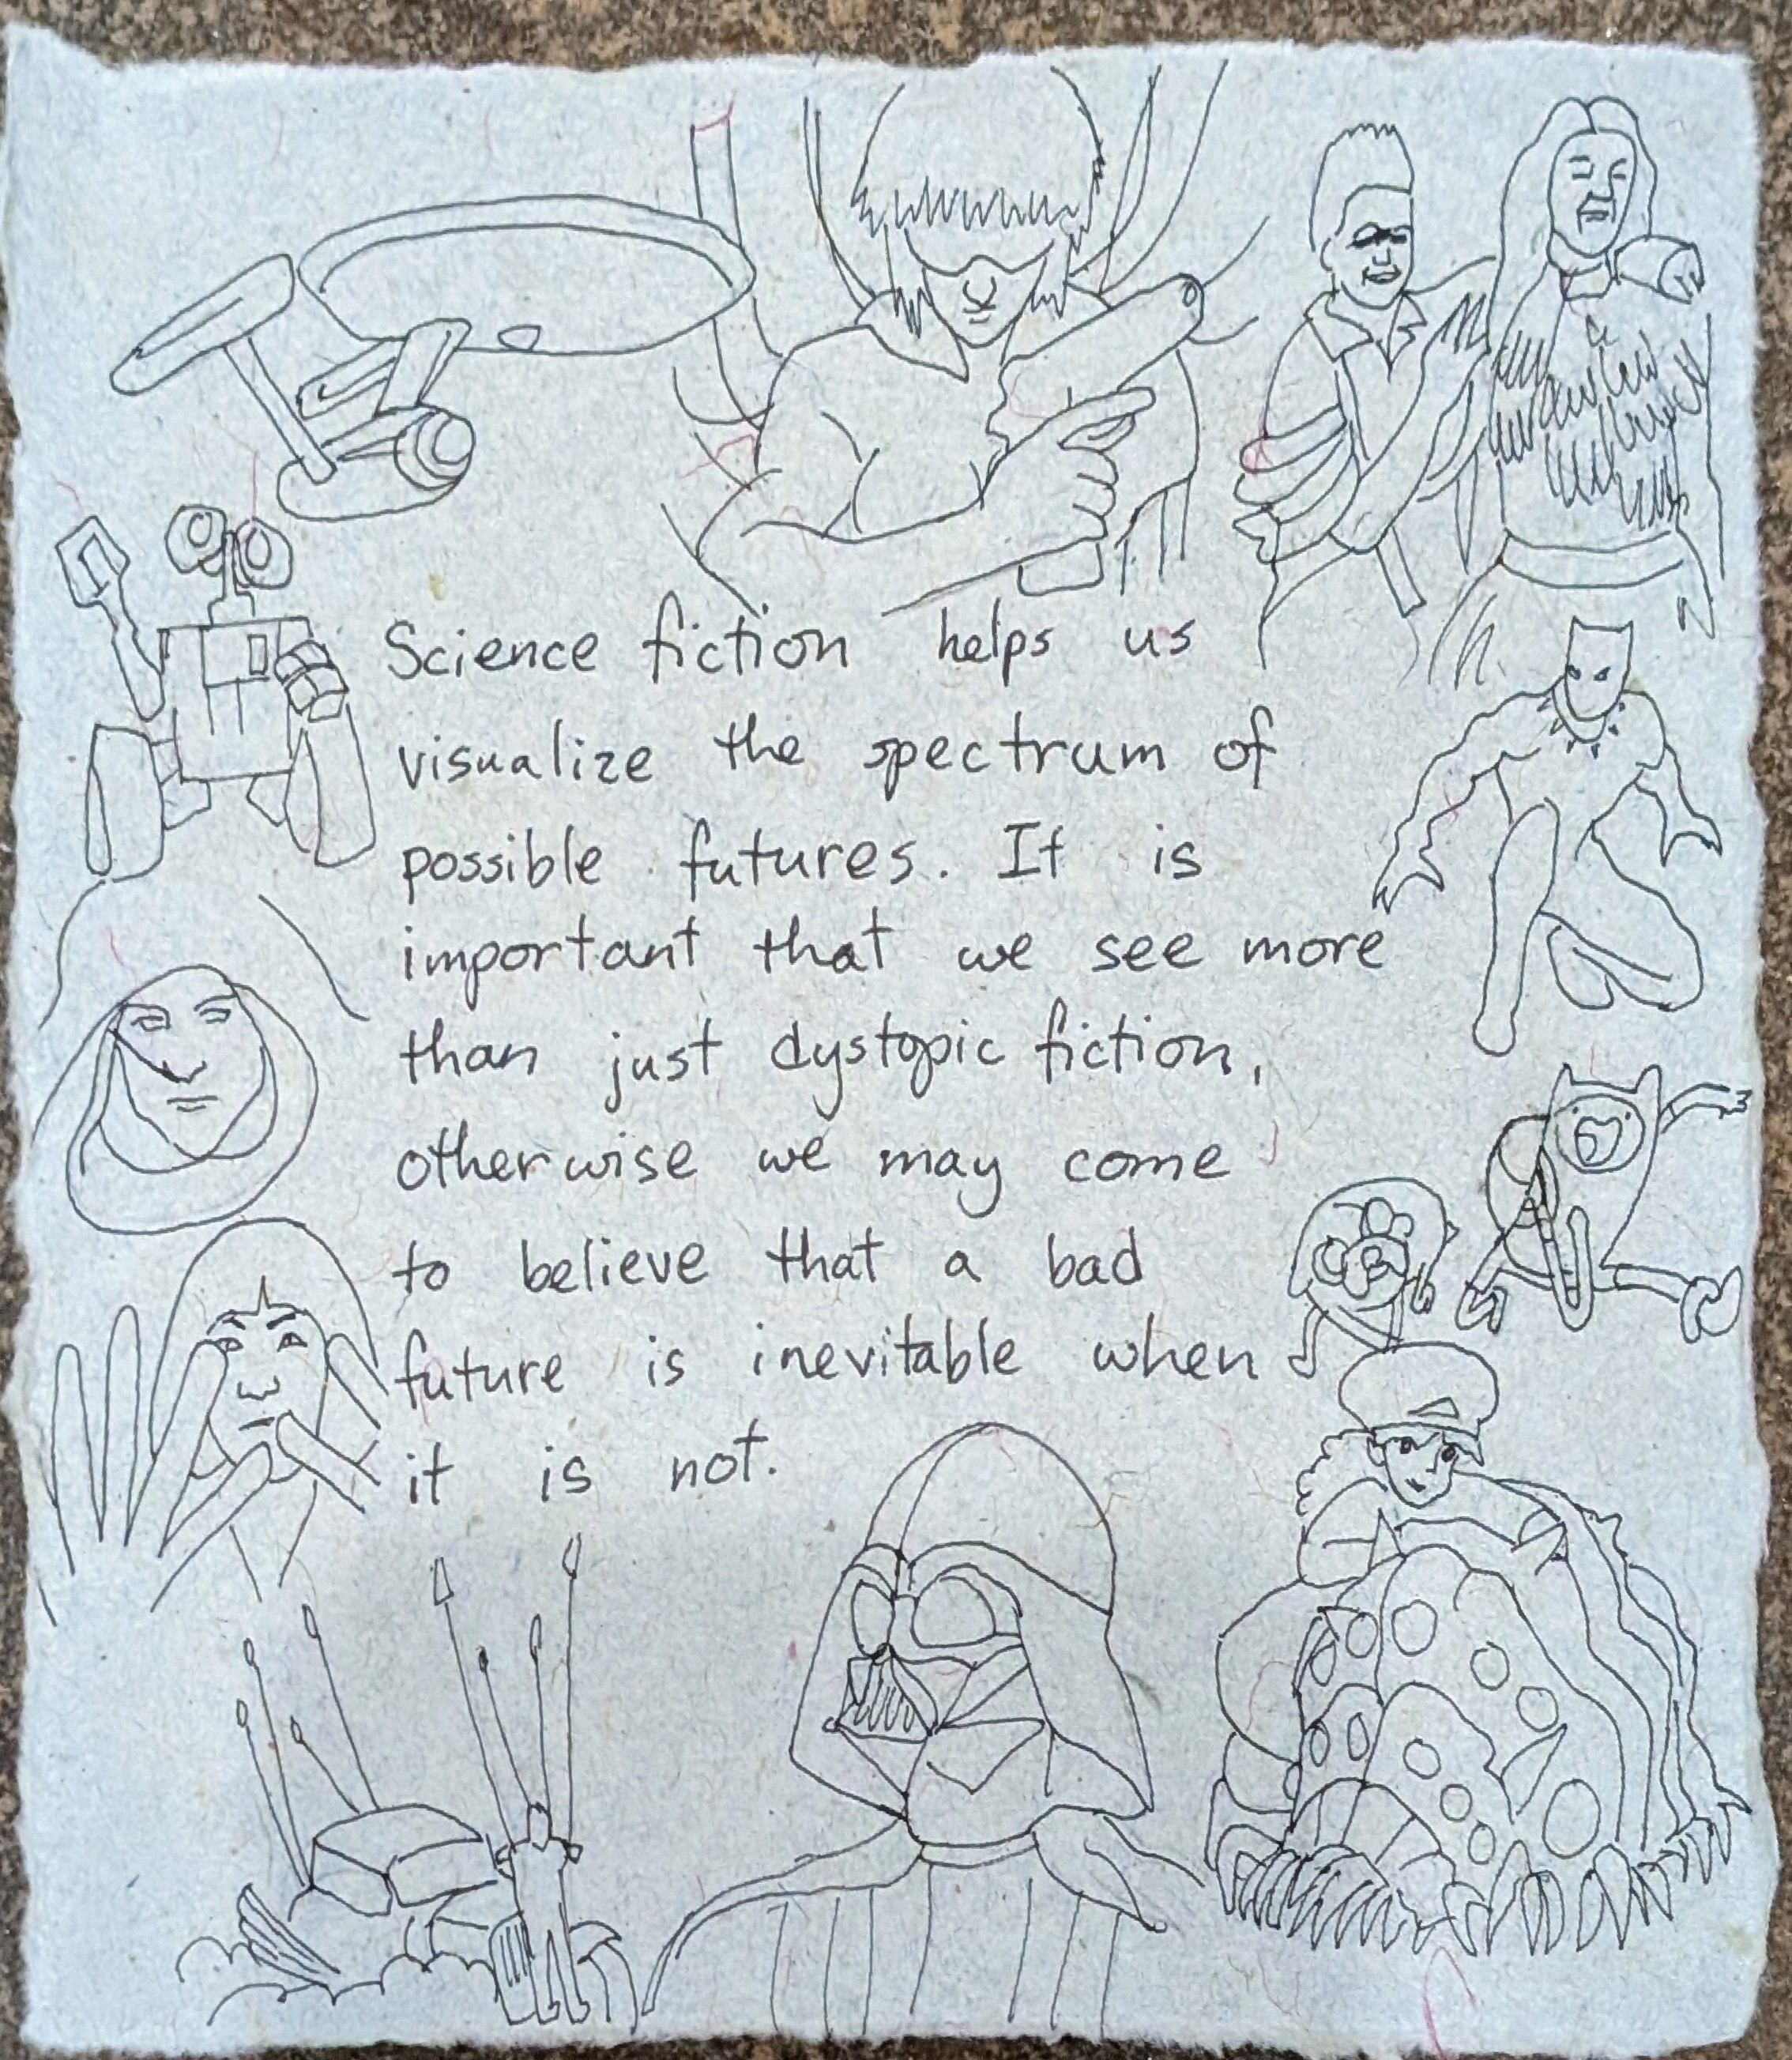 Science fiction helps us
visualize the spectrum of
possible futures. It is
important that we see more
than just dystopic fiction,
otherwise we may come
to believe that a bad
future is inevitable when
it is not.